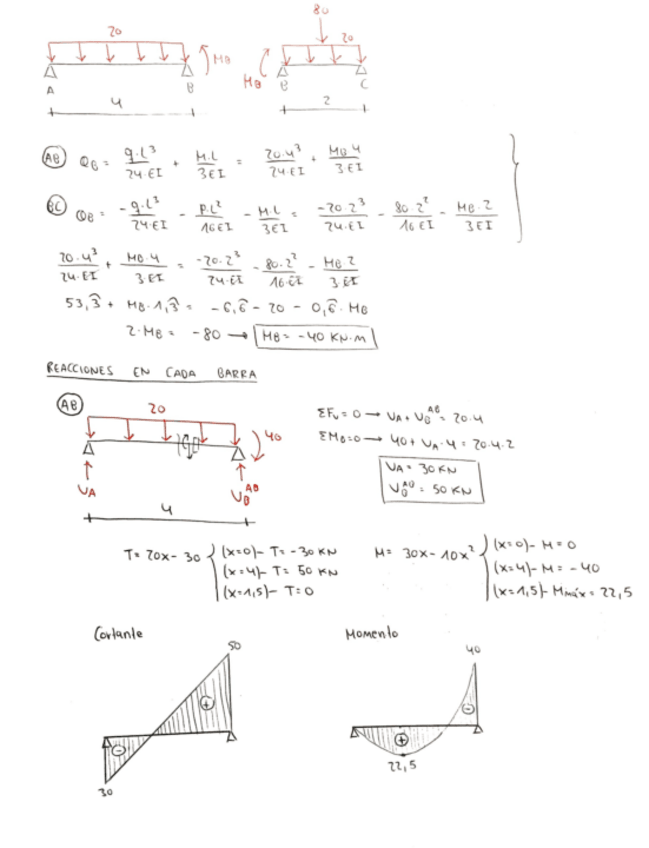 80
20
20
MB
MB
A
B
B
C
4
2
AB QB = q·L³/24·EI + M·L/3EI = 20·4³/24·EI + MB·4/3EI
BC QB = -q·L³/24·EI - P·L²/16EI - M·L/3EI = -20·2³/24·EI - 80·2²/16EI - MB·2/3EI
20·4³/24·EI + MB·4/3·EI = -20·2³/24·EI - 80·2²/16·EI - MB·2/3·EI
53,3̂ + MB·1,3̂ = -6,6̂ - 20 - 0,6̂·MB
2·MB = -80 → MB = -40 KN·m
REACCIONES EN CADA BARRA
AB
20
40
VA
VB^AB
4
ΣFv=0 → VA + VB^AB = 20·4
ΣMB=0 → 40 + VA·4 = 20·4·2
VA = 30 KN
VB^AB = 50 KN
T = 20x - 30
(x=0)- T = -30 KN
(x=4)- T = 50 KN
(x=1,5)- T=0
M = 30x - 10x²
(x=0)- M = 0
(x=4)- M = -40
(x=1,5)- Mmáx = 22,5
Cortante
50
+
-
30
Momento
40
-
+
22,5